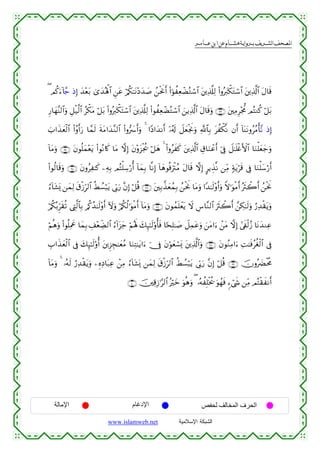 المصحف الشريف برواية هشام عن ابن عامر
قَالَ ٱلَّذِينَ ٱسۡتَكۡبَرُواْ لِلَّذِينَ ٱسۡتُضۡعِفُوٓاْ أَنَحۡنُ صَدَدۡنَٰكُمۡ عَنِ ٱلۡهُدَىٰ بَعۡدَ إِذۡ جَآءَكُمۖ
بَلۡ كُنتُم مُّجۡرِمِينَ ٣٢ وَقَالَ ٱلَّذِينَ ٱسۡتُضۡعِفُواْ لِلَّذِينَ ٱسۡتَكۡبَرُواْ بَلۡ مَكۡرُ ٱلَّيۡلِ وَٱلنَّهَارِ
إِذۡ تَأۡمُرُونَنَآ أَن نَّكۡفُرَ بِٱللَّهِ وَنَجۡعَلَ لَهُۥٓ أَندَادٗاۚ وَأَسَرُّواْ ٱلنَّدَامَةَ لَمَّا رَأَوُاْ ٱلۡعَذَابَ
وَجَعَلۡنَا ٱلۡأَغۡلَٰلَ فِيٓ أَعۡنَاقِ ٱلَّذِينَ كَفَرُواْۖ هَلۡ يُجۡزَوۡنَ إِلَّا مَا كَانُواْ يَعۡمَلُونَ ٣٣ وَمَآ
أَرۡسَلۡنَا فِي قَرۡيَةٖ مِّن نَّذِيرٍ إِلَّا قَالَ مُتۡرَفُوهَآ إِنَّا بِمَآ أُرۡسِلۡتُم بِهِۦ كَٰفِرُونَ ٣٤ وَقَالُواْ
نَحۡنُ أَكۡثَرُ أَمۡوَٰلٗا وَأَوۡلَٰدٗا وَمَا نَحۡنُ بِمُعَذَّبِينَ ٣٥ قُلۡ إِنَّ رَبِّي يَبۡسُطُ ٱلرِّزۡقَ لِمَن يَشَآءُ
وَيَقۡدِرُ وَلَٰكِنَّ أَكۡثَرَ ٱلنَّاسِ لَا يَعۡلَمُونَ ٣٦ وَمَآ أَمۡوَٰلُكُمۡ وَلَآ أَوۡلَٰدُكُم بِٱلَّتِي تُقَرِّبُكُمۡ
عِندَنَا زُلۡفَىٰٓ إِلَّا مَنۡ ءَامَنَ وَعَمِلَ صَٰلِحٗا فَأُوْلَٰٓئِكَ لَهُمۡ جَزَآءُ ٱلضِّعۡفِ بِمَا عَمِلُواْ وَهُمۡ
فِي ٱلۡغُرُفَٰتِ ءَامِنُونَ ٣٧ وَٱلَّذِينَ يَسۡعَوۡنَ فِيٓ ءَايَٰتِنَا مُعَٰجِزِينَ أُوْلَٰٓئِكَ فِي ٱلۡعَذَابِ
مُحۡضَرُونَ ٣٨ قُلۡ إِنَّ رَبِّي يَبۡسُطُ ٱلرِّزۡقَ لِمَن يَشَآءُ مِنۡ عِبَادِهِۦ وَيَقۡدِرُ لَهُۥۚ وَمَآ
أَنفَقۡتُم مِّن شَيۡءٖ فَهُوَ يُخۡلِفُهُۥۖ وَهُوَ خَيۡرُ ٱلرَّٰزِقِينَ ٣٩
الحرف المخالف لحفص الإدغام الإمالة
الشبكة الإسلامية www.islamweb.net